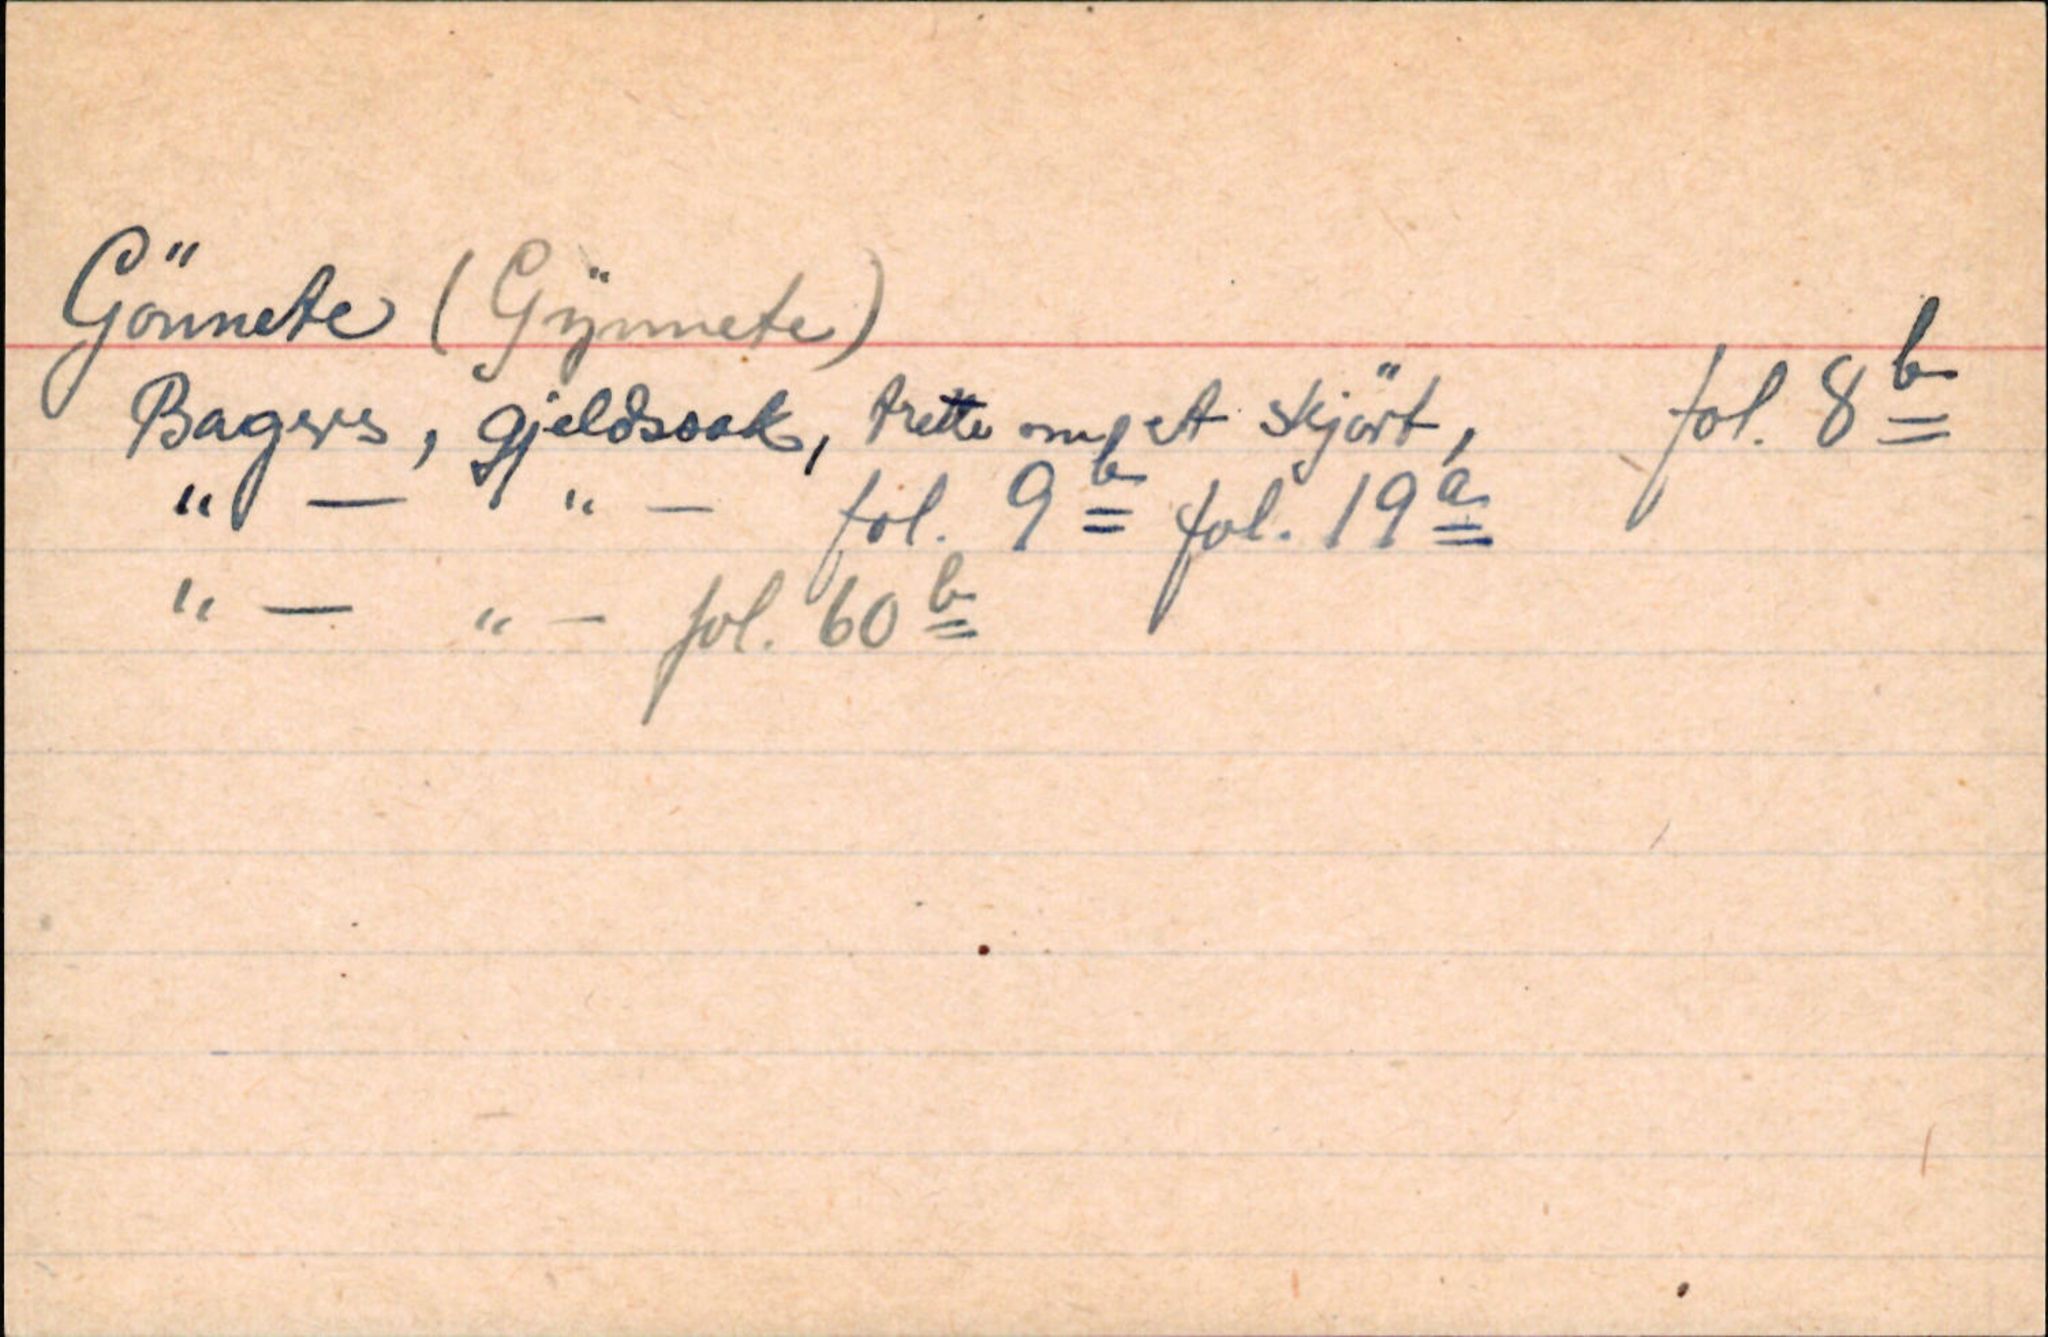 Gönnete (Gÿnnete)
Bagers, gjeldssak, trette om et skjört, fol. 8 b
" — " — fol. 9 b fol. 19 a
" — " — fol. 60 b